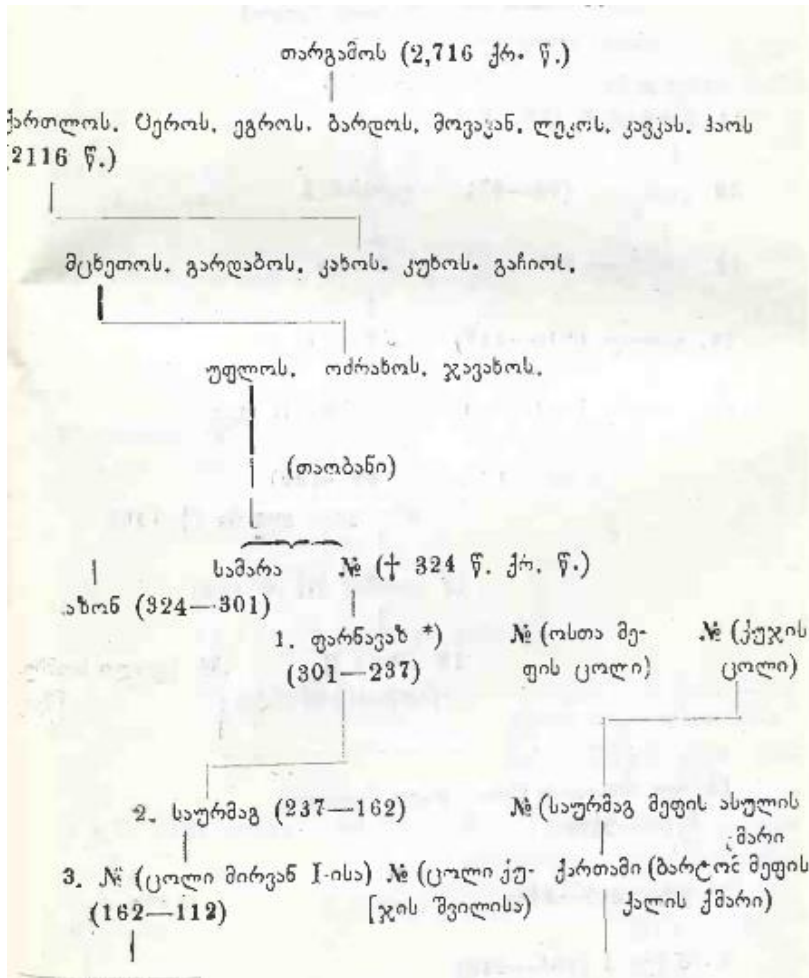 თარგამოს (2,716 ქრ. წ.)
ქართლოს. ჰეროს. ეგროს. ბარდოს. მოვაკან. ლეკოს. კავკას. ჰაოს
(2116 წ.)
მცხეთოს. გარდაბოს. კახოს. კუხოს. გაჩიოს.
უფლოს. ოძრახოს. ჯავახოს.
(თაობანი)
სამარა № († 324 წ. ქრ. წ.)
აზონ (324—301)
1. ფარნავაზ *) № (ოსთა მე- № (ქუჯის
(301—237) ფის ცოლი) ცოლი)
2. საურმაგ (237—162) № (საურმაგ მეფის ასულის
ქმარი
3. № (ცოლი მირვან I-ისა) № (ცოლი ქუ- ქართამი (ბარტომ მეფის
(162—112) [ჯის შვილისა) ქალის ქმარი)